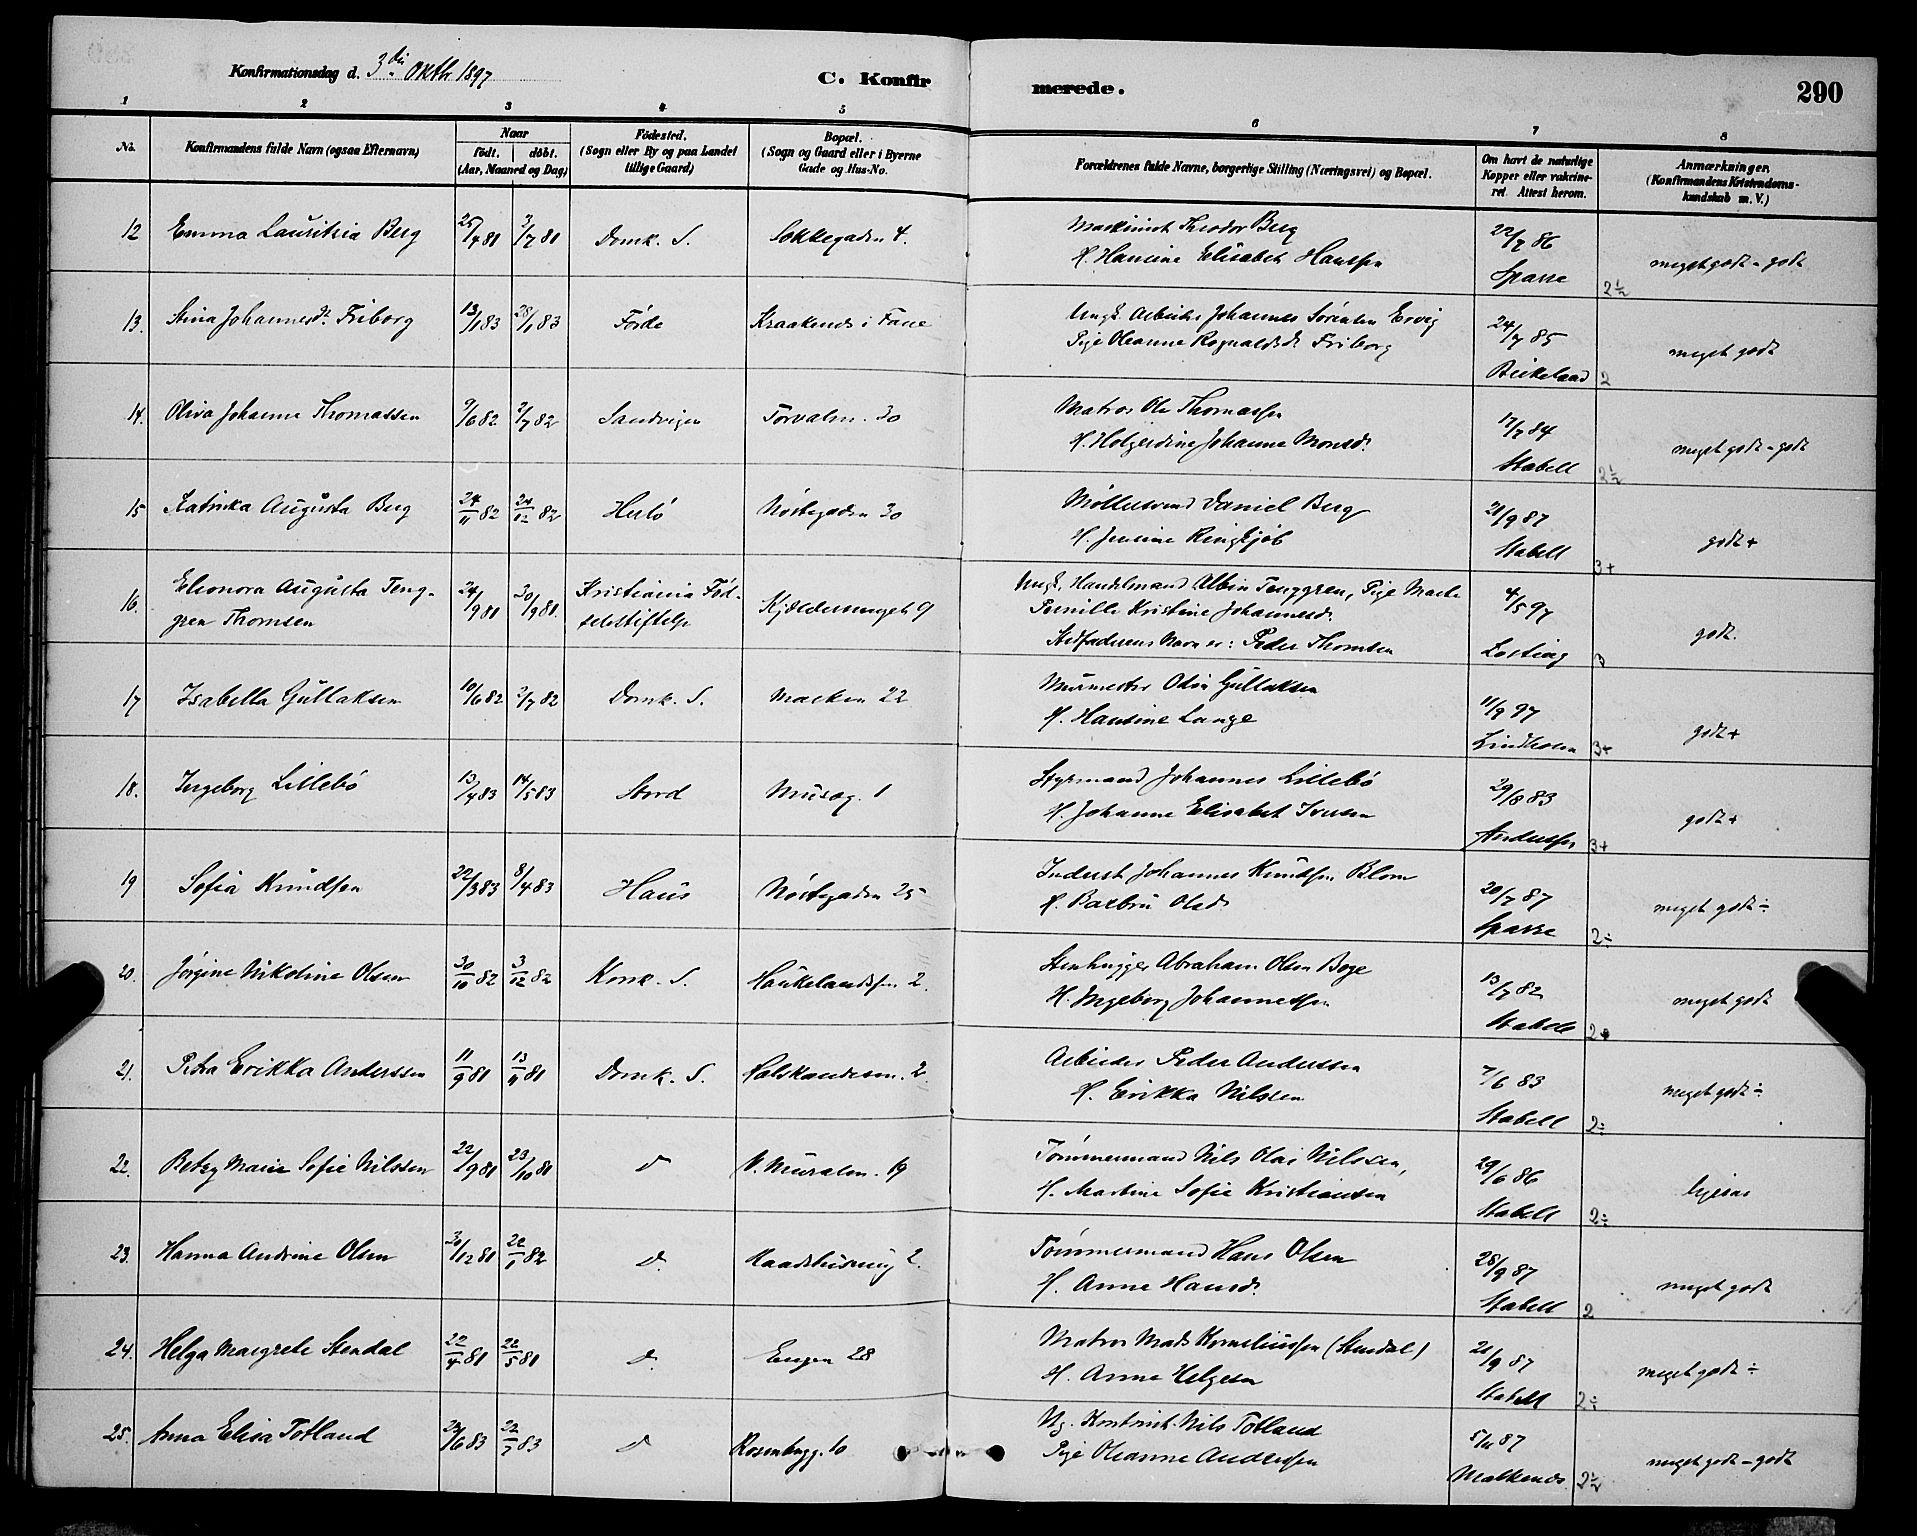 Konfirmationsdag d. 3die Oktbr 1897
C. Konfir merede.
290
1 2 3 4 5 6 7 8
No.
Konfirmandens fulde Navn (ogsaa Efternavn)
Naar
födt. döbt.
(Aar, Maaned og Dag)
Födested.
(Sogn eller By og paa Landet
tillige Gaard)
Bopæl.
(Sogn og Gaard eller i Byerne
Gade og Hus-No.
Forældrenes fulde Navne, borgerlige Stilling (Næringsvei) og Bopæl.
Om havt de naturlige
Kopper eller vakcine-
ret. Attest herom.
Anmærkninger.
(Konfirmandens Kristendoms-
kundskab m. V.)
12 Emma Lauritzia Berg 25/4 81 3/7 81 Domk. S. Sokkegaden 4. Maskinist Theodor Berg 22/7 86 meget godt - godt
H. Hansine Elisabet Hanssen Sparre 2½
13. Stina Johannesdr. Friborg 13/1 83 28/1 83 Förde Kraakenes i Fane Ungk. Arbeider Johannes Sörensen Ervig 24/7 85 meget godt
Pige Oleanne Rognaldsdr. Friborg Birkeland 2
14. Oliva Johanne Thomassen 9/6 82 2/7 82 Sandvigen Torvalm. 30 Matros Ole Thomassen 17/7 84 meget godt - godt
H. Holgerdine Johanne Monsdr. Stabell 2½
15 Katinka Augusta Berg 24/11 82 24/12 82 Herlö Nöstegaden 30 Möllersvend Daniel Berg 21/9 87 godt+
H. Jensine Ringkjöb Stabell 3+
16. Elionora Augusta Teng- 24/9 81 30/9 81. Kristiania Föd- Kjeldersmuget 9 Ungk. Handelsmand Albin Tenggren, Pige 4/5 97 godt.
gren Thomsen selsstiftelse Pernille Kristine Johannesdr.
Stedfaderens Navn er: Peder Thomsen 3
17 Isabella Gullaksen 10/6 82 2/7 82 Domk. S. Marken 22 Murmester Olai Gullaksen 11/9 97 godt+
H. Hansine Lange Lindholm 3+
18. Ingeborg Lillebö 13/4 83 14/5 83 Stord Museg. 1 Styrmand Johannes Lillebö 29/8 83 godt+
H. Johanne Elisabet Iversen Anderssen 3+
19 Sofia Knudsen 22/3 83 8/4 83 Haus Nöstegaden 25 Inderst Johannes Knudsen Blom 20/7 87 meget godt ÷
H. Barbru Olsdr. Sparre 2÷
20. Jörgine Nikoline Olsen 30/10 82 3/12 82 Korsk. S. Haukelandsveien 2. Stenhugger Abraham Olsen Boge 13/7 82 meget godt
H. Ingeborg Johannessen Stabell 2
21. Petra Erikka Anderssen 11/9 81 13/11 81 Domk. S. Kalskandesm. 2 Arbeider Peder Anderssen 7/6 83 meget godt ÷
H. Erikka Nilssen Stabell 2÷
22. Betzy Marie Sofie Nilssen 22/9 81 23/10 81 d V. Muralm. 19 Tömmermand Nils Olai Nilssen, 29/6 86
H. Martine Sofie Kristiansen Stabell 2÷
23. Hanna Andrine Olsen 30/12 81 22/1 82 d. Raadhusmug 2. Tömmermand Hans Olsen 28/9 87 meget godt
H. Anne Hansdr. Stabell 2
24. Helga Margrete Stendal 22/4 81 22/5 81 d. Engen 28 Matros Mads Korneliussen (Stendal) 21/9 87 meget godt ÷
H. Anne Helgesen Stabell 2÷
25. Anna Elisa Totland 24/6 83 22/7 83 d Rosenbgg. 10 Ug. Kontorist Nils Totland 5/11 87 meget godt - godt
Pige Oleanne Anderssen 2½